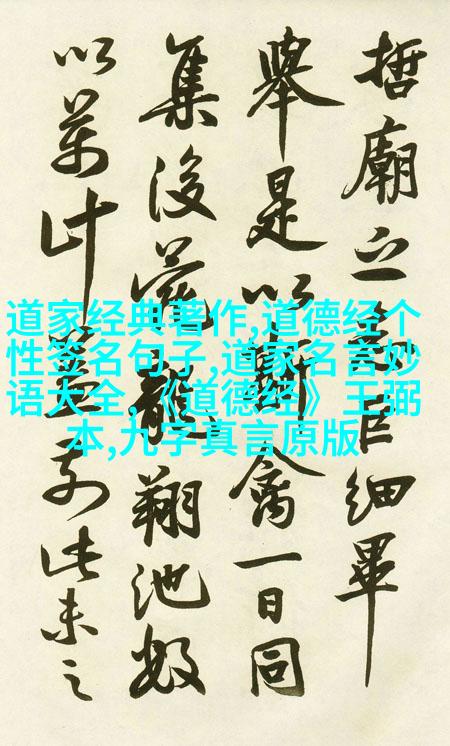 道家经典著作,道德经个
性签名句子,道家名言妙
语大全,《道德经》王弼
本,九字真言原版
哲廟之臣細畢
舉是以禽一日同
集後龍翔池
以萬計前此未之